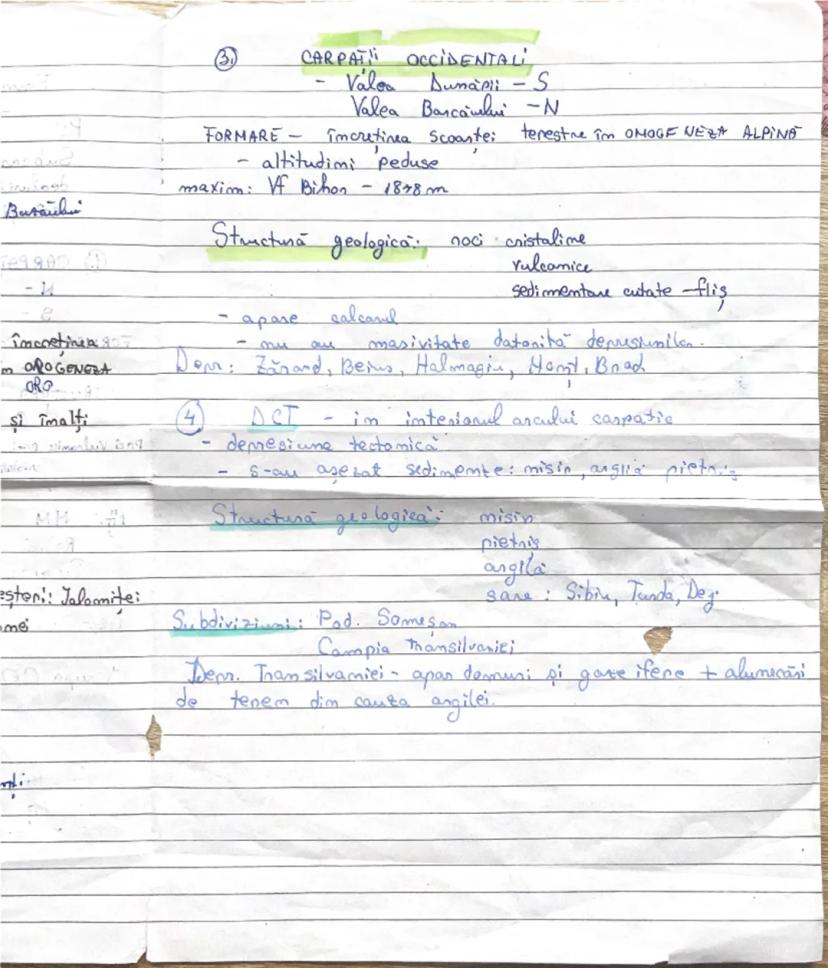 3.
CARPAȚII OCCIDENTALI
- Valea Dunării - S
Valea Barcăului - N
FORMARE - încrețirea scoarței terestre în OROGENEZA ALPINĂ
- altitudini reduse
maxim: Vf Bihor - 1848 m
Buzăului
Structură geologică: roci cristaline
vulcanice
sedimentare cutate - fliș
- apare calcarul
- nu au masivitate datorită depresiunilor.
încrețirea
Depr: Zărand, Beiuș, Halmagiu, Brad
în OROGENEZA
ORO
și înalți
4 DCT - în interiorul arcului carpatic
- depresiune tectonică
- s-au așezat sedimente: nisip, argilă pietriș
Structură geologică: nisip
pietriș
argilă
sare: Sibiu, Turda, Dej
Ialomiței
Subdiviziuni: Pod. Someșan
Campia Transilvaniei
Depr. Transilvaniei - apar domuri și gaze + alunecări
de teren din cauza argilei.